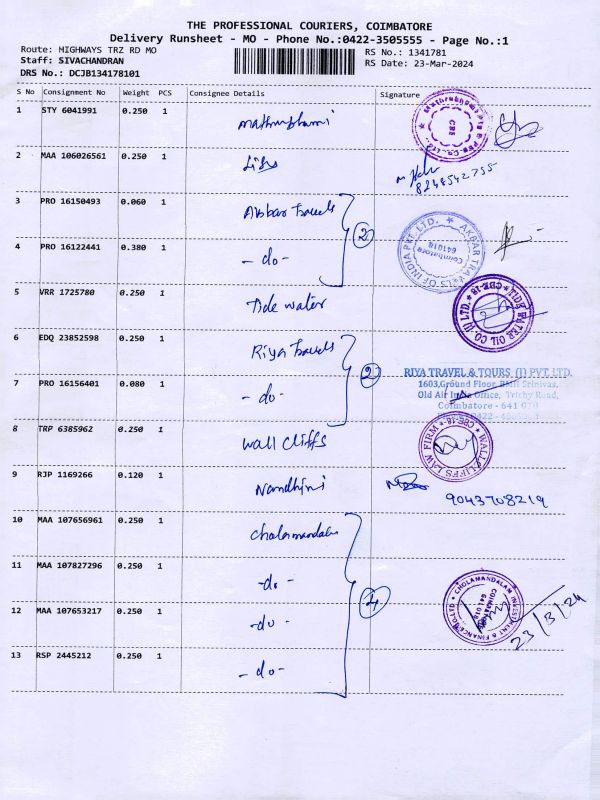 THE PROFESSIONAL COURIERS, COIMBATORE
Delivery Runsheet - MO - Phone No.:0422-3505555 - Page No.:1
Route: HIGHWAYS TRZ RD MO
RS No.: 1341781
Staff: SIVACHANDRAN
RS Date: 23-Mar-2024
DRS No.: DCJB134178101
S No Consignment No Weight PCS Consignee Details Signature
1 STY 6041991 0.250 1 Mathrubhumi
2 MAA 106026561 0.250 1
8248542755
3 PRO 16150493 0.060 1 Akbar Travels
2
4 PRO 16122441 0.380 1 - do -
AKBAR TRAVELS OF INDIA PVT LTD. Coimbatore 641018
5 VRR 1725780 0.250 1 Tide water
TIDE WATER OIL CO. (I) LTD. CBE-18
6 EDQ 23852598 0.250 1 Riya Travels
2
RIYA TRAVEL & TOURS (I) PVT LTD.
1603,Ground Floor, BMH Srinivas,
Old Air India Office, Trichy Road,
Coimbatore - 641 018
7 PRO 16156401 0.080 1 - do -
8 TRP 6385962 0.250 1 Wall Cliffs
WALL CLIFFS LAW FIRM CBE-18
9 RJP 1169266 0.120 1 Nandhini
9043708219
10 MAA 107656961 0.250 1 Cholamandalam
11 MAA 107827296 0.250 1 - do -
4
CHOLAMANDALAM INVESTMENT & FINANCE CO LTD COIMBATORE 641 018
23/3/24
12 MAA 107653217 0.250 1 - do -
13 RSP 2445212 0.250 1 - do -